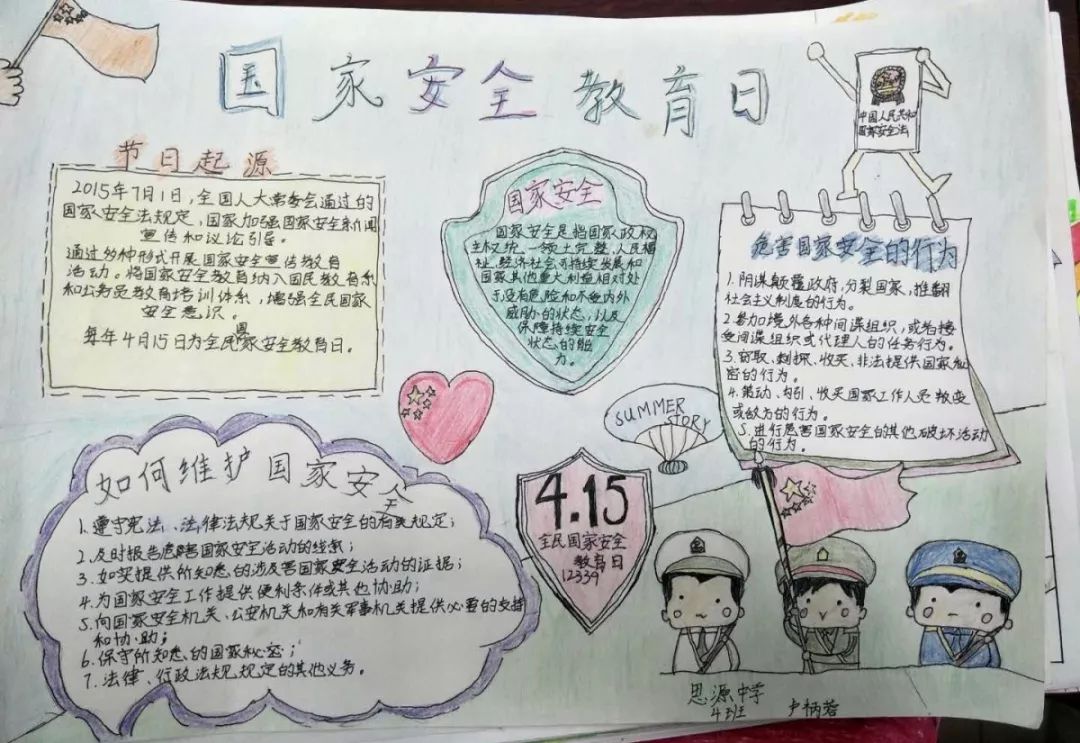 国家安全教育日
中国人民共和
国家安全法
节日起源
2015年7月1日,全国人大常委会通过的
国家安全法规定,国家加强国家安全新闻
宣传和议论引导。
通过多种形式开展国家安全宣传教育
活动。将国家安全教育纳入国民教育系
和公务员教育培训体系,增强全民国家
安全意识。
每年4月15日为全民国家安全教育日。
国家安全
国家安全是指国家政权
主权统一领土完整、人民福
祉、经济社会可持续发展和
国家其他重大利益相对处
于没有危险和不受内外
威胁的状态,以及
保障持续安全
状态的能
力。
危害国家安全的行为
1.阴谋颠覆政府,分裂国家,推翻
社会主义制度的行为。
2.参加境外各种间谍组织,或者接
受间谍组织或代理人的任务行为。
3.窃取、刺探、收买、非法提供国家秘
密的行为。
4.策动、勾引、收买国家工作人员叛变
或敌方的行为。
5.进行危害国家安全的其他破坏活动
的行为。
SUMMER
STORY
4.15
全民国家安全
教育日
12339
如何维护国家安全
1.遵守宪法、法律法规关于国家安全的有关规定;
2.及时报告危害国家安全活动的线索;
3.如实提供所知悉的涉及害国家安全活动的证据;
4.为国家安全工作提供便利条件或其他协助;
5.向国家安全机关、公安机关和有关军事机关提供必要的支持
和协助;
6.保守所知悉的国家秘密;
7.法律、行政法规规定的其他义务。
思源中学
4班